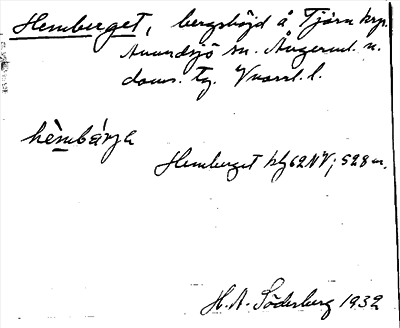 Hemberget, bergshöjd å Tjärn krp.
Anundsjö sn. Ångerml. n.
doms. tg. Vnorrl. l.
hèmbárja
Hemberget hfg 62NV; 528 m.
H. A. Söderberg 1932